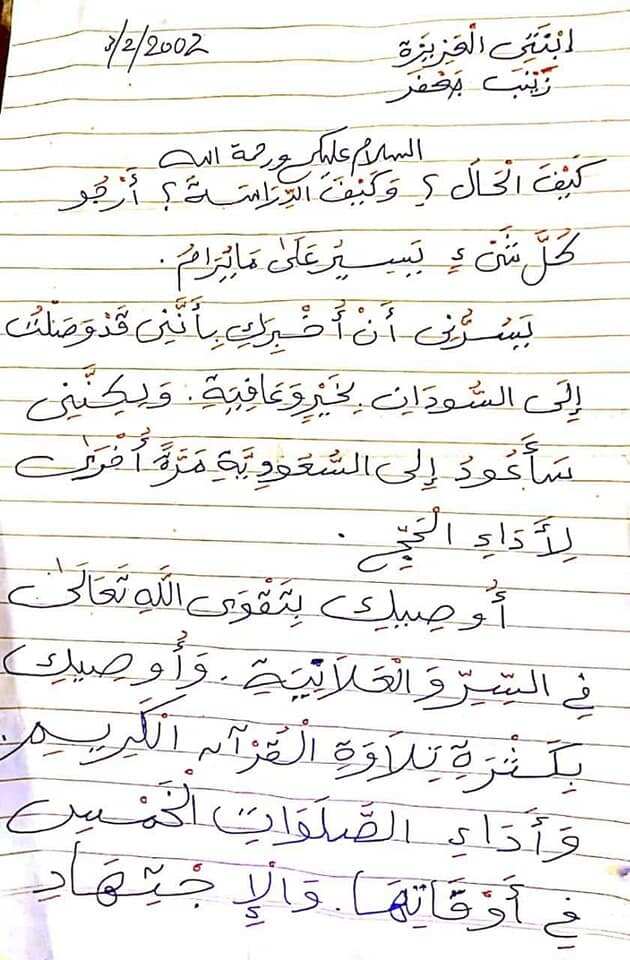 3/2/2002
ابْنَتِي الْعَزِيزَة
زَيْنَب جَعْفَر
السلام عليكم ورحمة الله
كَيْفَ الْحَالَ ؟ وَكَيْفَ الدِّرَاسَةُ ؟ أَرْجُو
كُلَّ شَيْءٍ يَسِيرُ عَلَى مَا يُرَامُ .
يَسُرُّنِي أَنْ أُخْبِرَكِ بِأَنَّنِي قَدْ وَصَلْتُ
إِلَى السُّودَانِ بِخَيْرٍ وَعَافِيَةٍ . وَلَكِنَّنِي
سَأَعُودُ إِلَى السُّعُودِيَّةِ مَرَّةً أُخْرَى
لِأَدَاءِ الْحَجِّ .
أُوصِيكِ بِتَقْوَى اللَّهِ تَعَالَى
فِي السِّرِّ وَالْعَلَانِيَةِ . وَأُوصِيكِ
بِكَثْرَةِ تِلَاوَةِ الْقُرْآنِ الْكَرِيمِ .
وَأَدَاءِ الصَّلَوَاتِ الْخَمْسِ
فِي أَوْقَاتِهَا . وَالْإِجْتِهَادِ